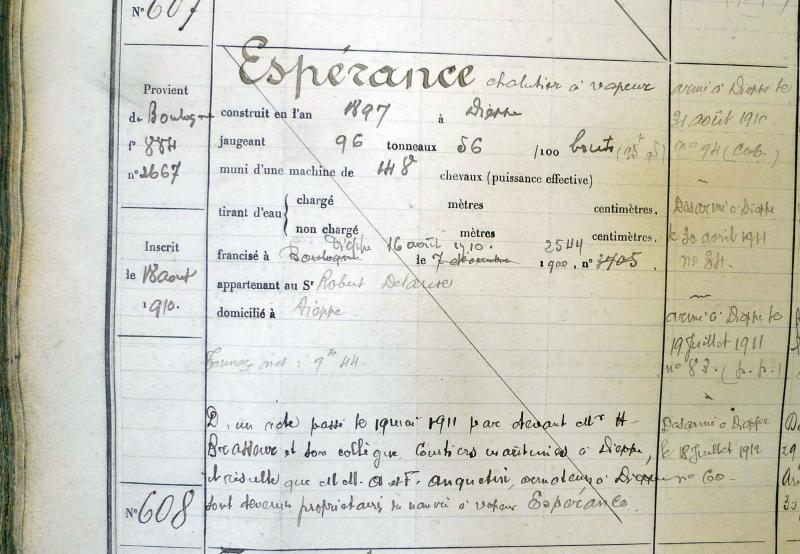 N° 607
Espérance chalutier à vapeur
Provient
de Boulogne
f° 884
n° 2667
construit en l'an 1897 à Dieppe
jaugeant 96 tonneaux 56 /100 bruts
muni d'une machine de 148 chevaux (puissance effective)
tirant d'eau { chargé mètres centimètres.
non chargé mètres centimètres.
Dieppe 16 août 1910. 2544
francisé à Boulogne le 7 décembre 1900, n° 3705.
appartenant au Sr Robert Delarue
domicilié à Dieppe
Inscrit
le 18 août
1910.
Tonnage net : 9 44
D'un acte passé le 19 mai 1911 par devant Mr H
Brasseur et son collègue Courtiers maritimes à Dieppe,
il résulte que MM. A et F. Anquetin, armateurs à Dieppe
sont devenus propriétaires du navire à vapeur Espérance.
N° 608
armé à Dieppe le
31 août 1910
n° 94 (Cab.)
Desarmé à Dieppe
le 30 avril 1911
n° 34.
armé à Dieppe le
19 Juillet 1911
n° 83. (p. p.)
Desarmé à Dieppe
le 18 Juillet 1912
n° 60